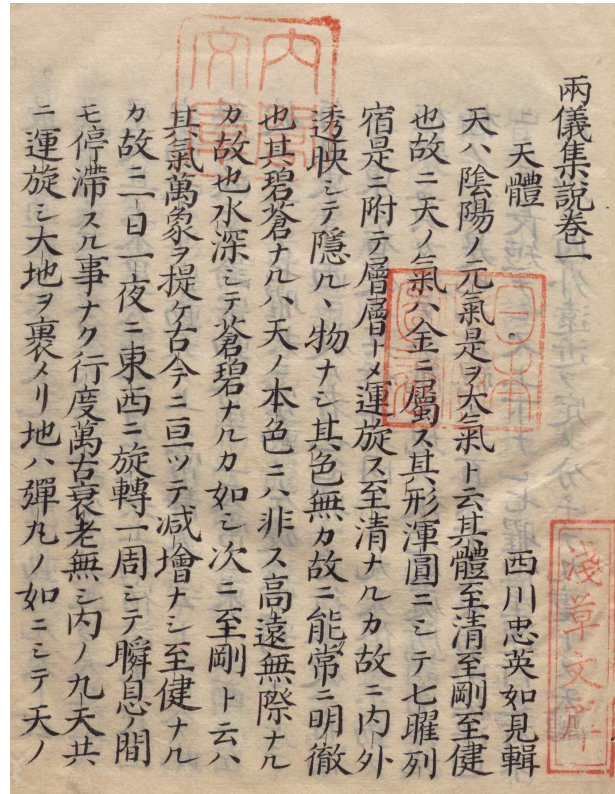 兩儀集説卷一
天體
西川忠英如見輯
天ハ陰陽ノ元氣是ヲ大氣ト云其體至清至剛至健
也故ニ天ノ氣ハ金ニ屬ス其形渾圓ニシテ七曜列
宿是ニ附テ層層トメ運旋ス至清ナルカ故ニ内外
透映シテ隱ルヽ物ナシ其色無カ故ニ能常ニ明徹
也其碧蒼ナルハ天ノ本色ニハ非ス高遠無際ナル
カ故也水深シテ蒼碧ナルカ如シ次ニ至剛ト云ハ
其氣萬象ヲ提ケ古今ニ亘ツテ减增ナシ至健ナル
カ故ニ一日一夜ニ東西ニ旋轉一周シテ瞬息ノ間
モ停滞スル事ナク行度萬古衰老無シ内ノ九天共
ニ運旋シ大地ヲ裹メリ地ハ彈丸ノ如ニシテ天ノ
淺草文庫
日本
内閣文庫